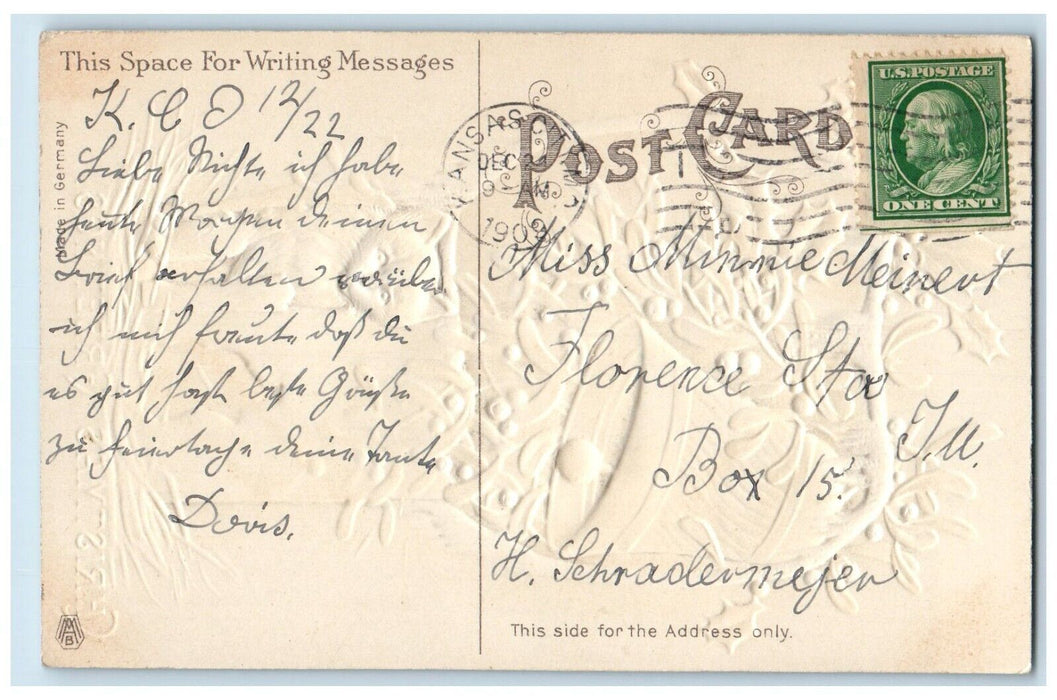 This Space For Writing Messages
K. C O 12/22
Liebe Nichte ich habe
heute Morgen deinen
Brief erhalten worüber
ich mich freute daß du
es gut hast beste Grüße
zu Feiertache deine Tante
Doris.
Made in Germany
POST CARD
KANSAS CITY
DEC
9 AM
1909
U.S. POSTAGE
ONE CENT
Miss Minnie Meinert
Florence Sta
Ill
Box 15.
H. Schradermejer
This side for the Address only.